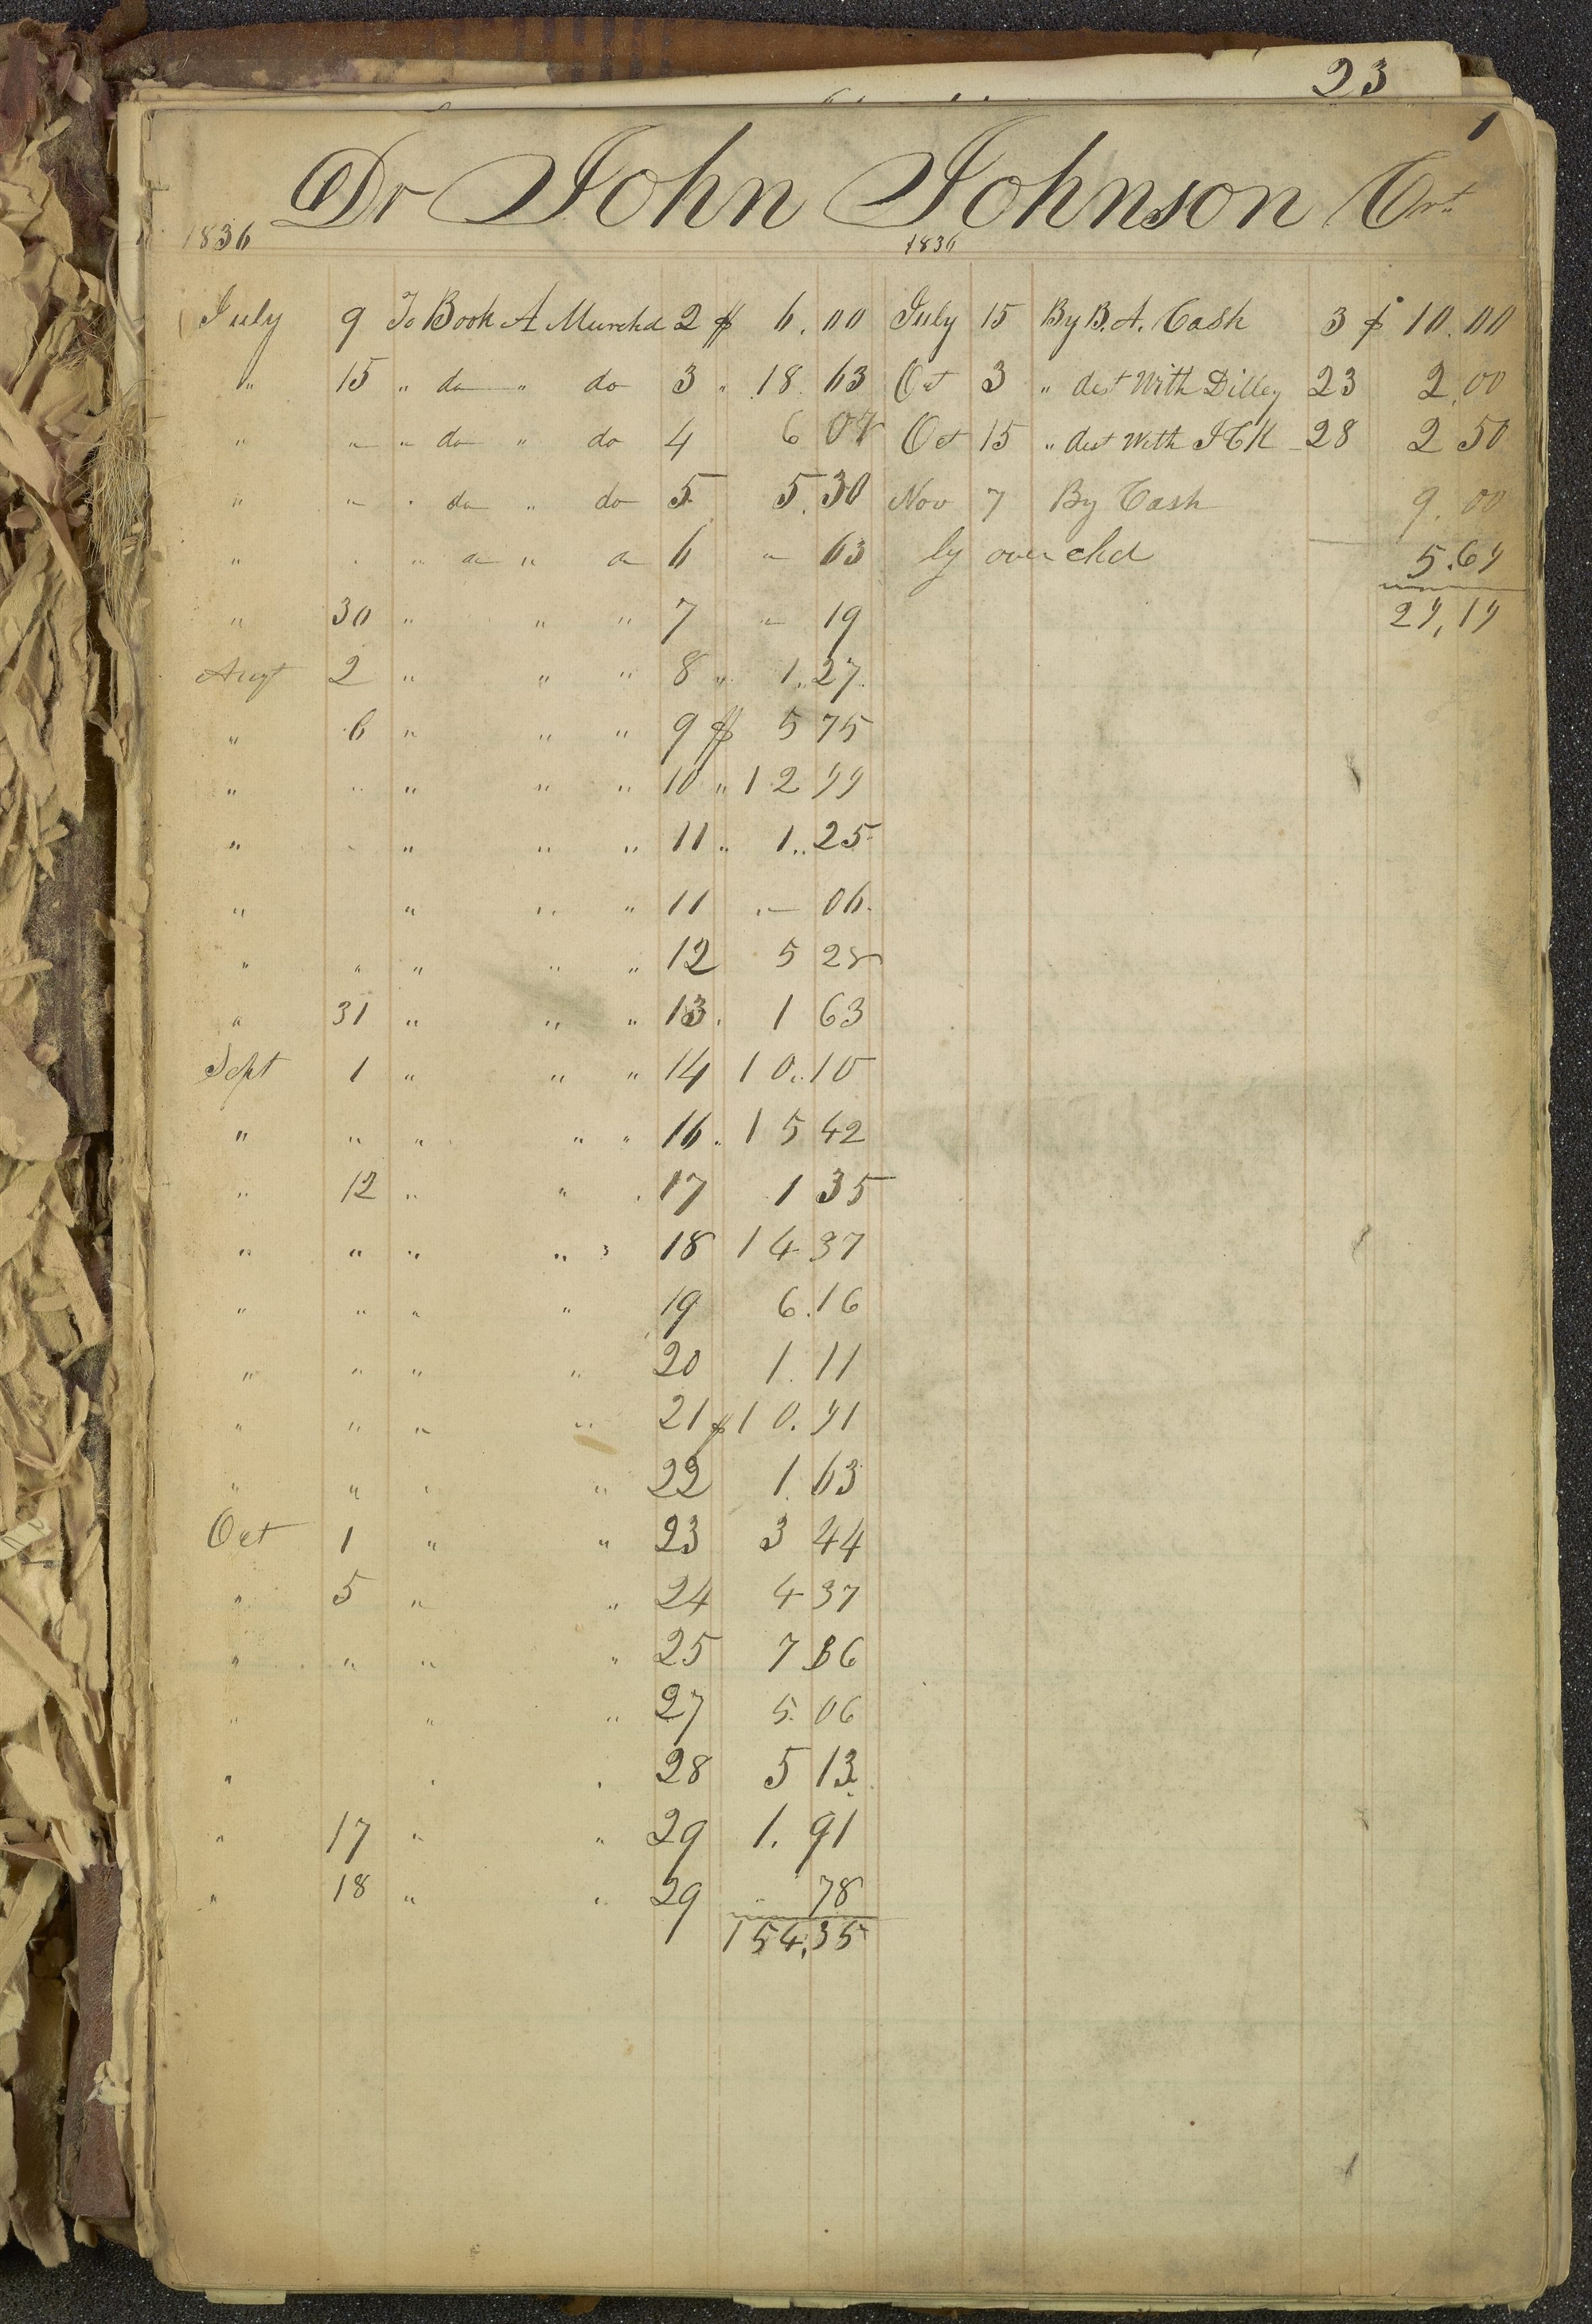 23
1
Dr John Johnson Crt
1836 1836
July 9 To Book A Murchd 2 $ 6.00 July 15 By B. A. Cash 3 $ 10.00
" 15 " do " do 3 " 18.63 Oct 3 " dest With Dilley 23 2.00
" " " do " do 4 6 08 Oct 15 " dest With J C K 28 2 50
" " " do " do 5 5.30 Nov 7 By Cash 9.00
" " " " " " 6 " 63 by over chd 5.69
" 30 " " " 7 " 19 29,19
Augt 2 " " " 8 " 1.27
" 6 " " " 9 $ 5 75
" " " " " 10 " 12 99
" " " " " 11 " 1.25
" " " " 11 " 06
" " " " " 12 5 28
" 31 " " " 13 1 63
Sept 1 " " " 14 10.10
" " " " " 16 15 42
" 12 " " " 17 1 35
" " " " " 18 14 37
" " " " 19 6.16
" " " " 20 1.11
" " " " 21 $ 10.91
" " " " 22 1.63
Oct 1 " " 23 3 44
" 5 " " 24 4 37
" " " " 25 7 86
" " " 27 5.06
" " " 28 5 13
" 17 " " 29 1.91
" 18 " " 29 " 78
154.35